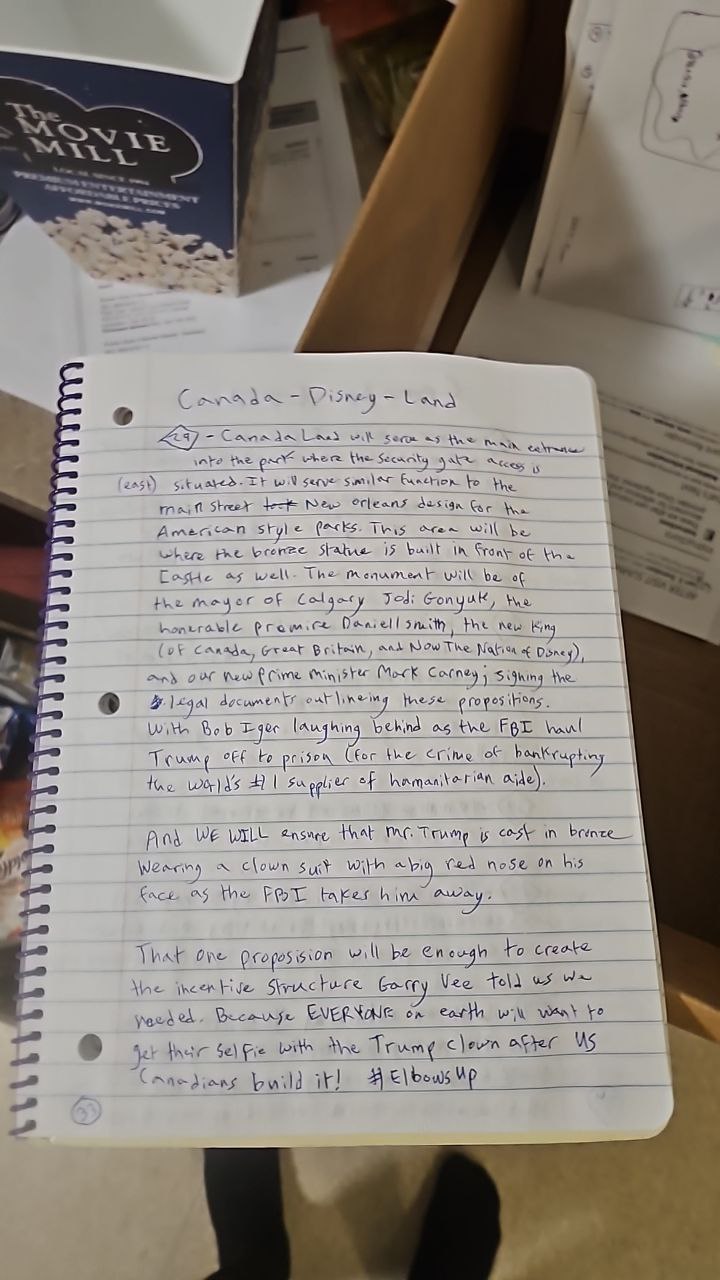 The
MOVIE
MILL
LOCAL SINCE
PREMIUM ENTERTAINMENT
AFFORDABLE PRICES
Canada - Disney - Land
29 - Canada Land will serve as the main entrance
into the park where the security gate access is
(east) situated. It will serve similar function to the
main street New orleans design for the
American style parks. This area will be
where the bronze statue is built in front of the
Castle as well. The monument will be of
the mayor of Calgary Jodi Gonyuk, the
honerable premire Daniell smith, the new King
(of Canada, Great Britain, and Now The Nation of Disney),
and our new prime minister Mark Carney; signing the
legal documents outlineing these propositions.
With Bob Iger laughing behind as the FBI haul
Trump off to prison (for the crime of bankrupting
the world's #1 supplier of hamanitarian aide).
And WE WILL ensure that Mr. Trump is cast in bronze
wearing a clown suit with a big red nose on his
face as the FBI takes him away.
That one proposision will be enough to create
the incentive structure Garry Vee told us we
needed. Because EVERYONE on earth will want to
get their selfie with the Trump clown after us
Canadians build it! #ElbowsUp
33